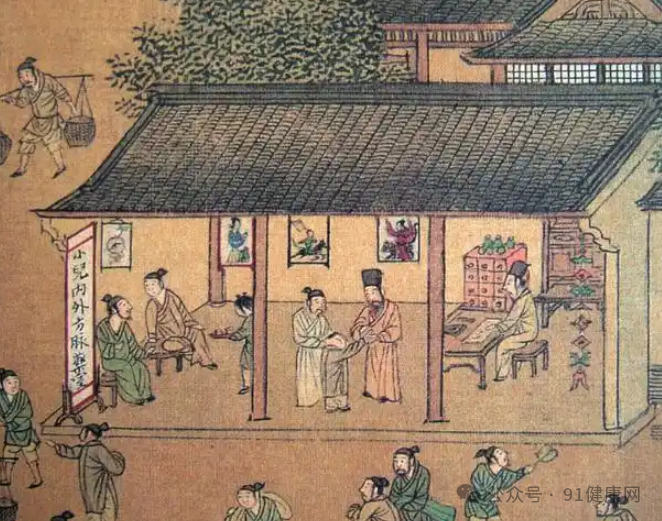 小兒内外方脉藥室
公众号 · 91健康网